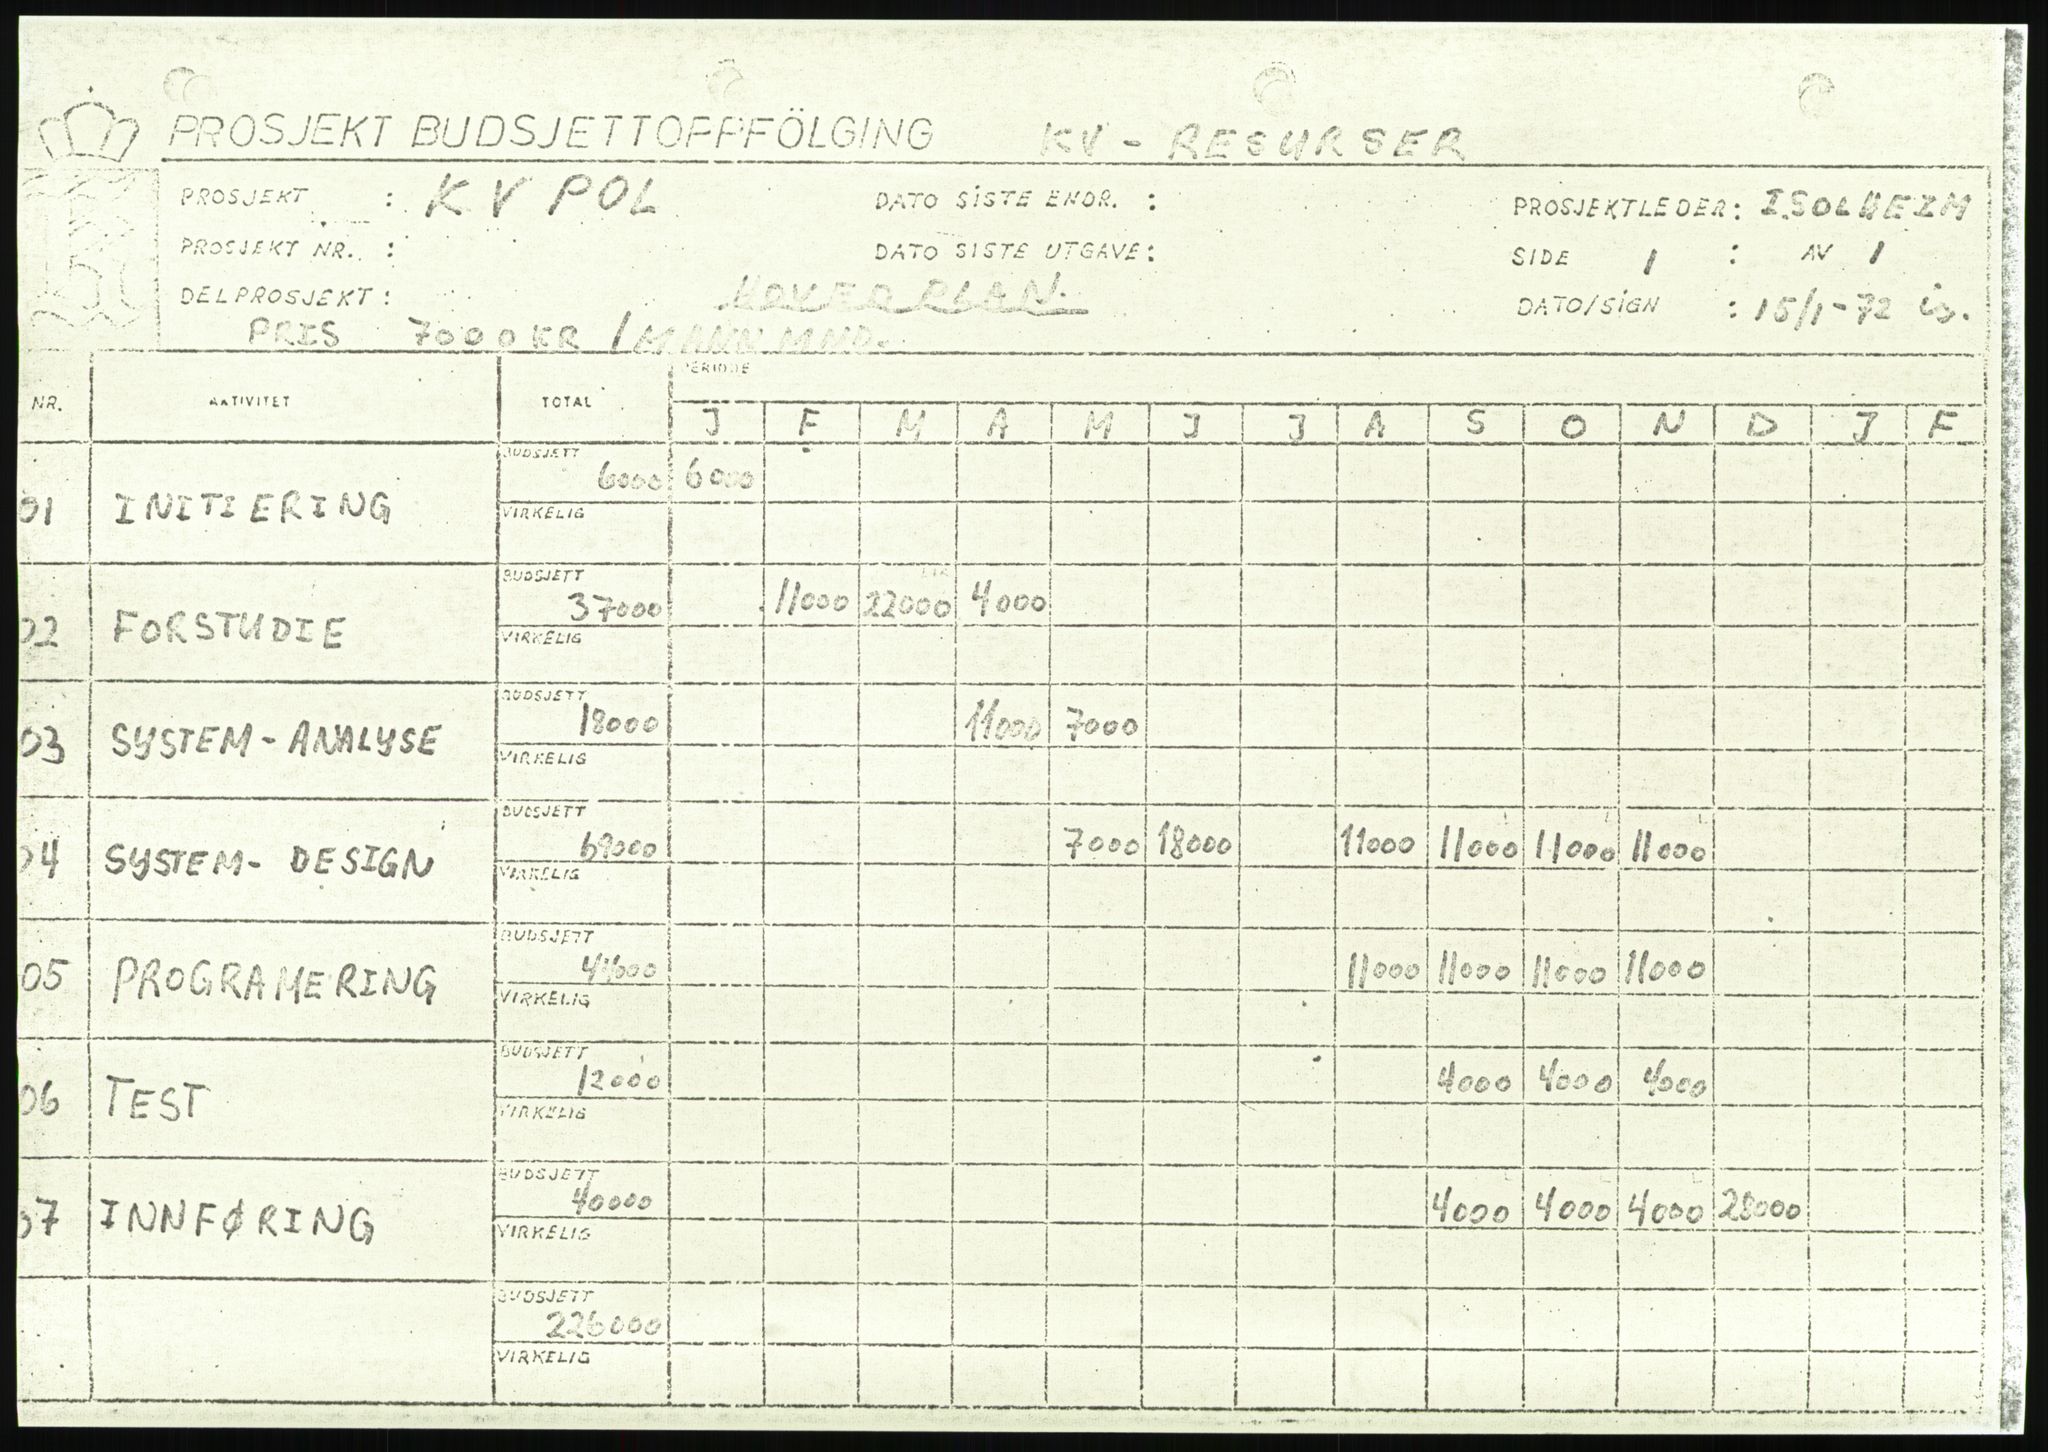 PROSJEKT BUDSJETTOPPFÖLGING KV - RESURSER
PROSJEKT : KV POL DATO SISTE ENDR. : PROSJEKTLEDER: I.SOLHEIM
PROSJEKT NR. : DATO SISTE UTGAVE: SIDE 1 : AV 1
DELPROSJEKT: HOVEDPLAN. DATO/SIGN : 15/1-72 is.
PRIS 7000 KR / MANN MND.
NR. AKTIVITET TOTAL PERIODE
J F M A M J J A S O N D J F
BUDSJETT 6000 6000
01 INITIERING
VIRKELIG
BUDSJETT
37000 11000 22000 4000
02 FORSTUDIE
VIRKELIG
BUDSJETT
18000 11000 7000
03 SYSTEM-ANALYSE
VIRKELIG
BUDSJETT
69000 7000 18000 11000 11000 11000 11000
04 SYSTEM- DESIGN
VIRKELIG
BUDSJETT
44000 11000 11000 11000 11000
05 PROGRAMERING
VIRKELIG
BUDSJETT
12000 4000 4000 4000
06 TEST
VIRKELIG
BUDSJETT
40000 4000 4000 4000 28000
07 INNFØRING
VIRKELIG
BUDSJETT
226000
VIRKELIG